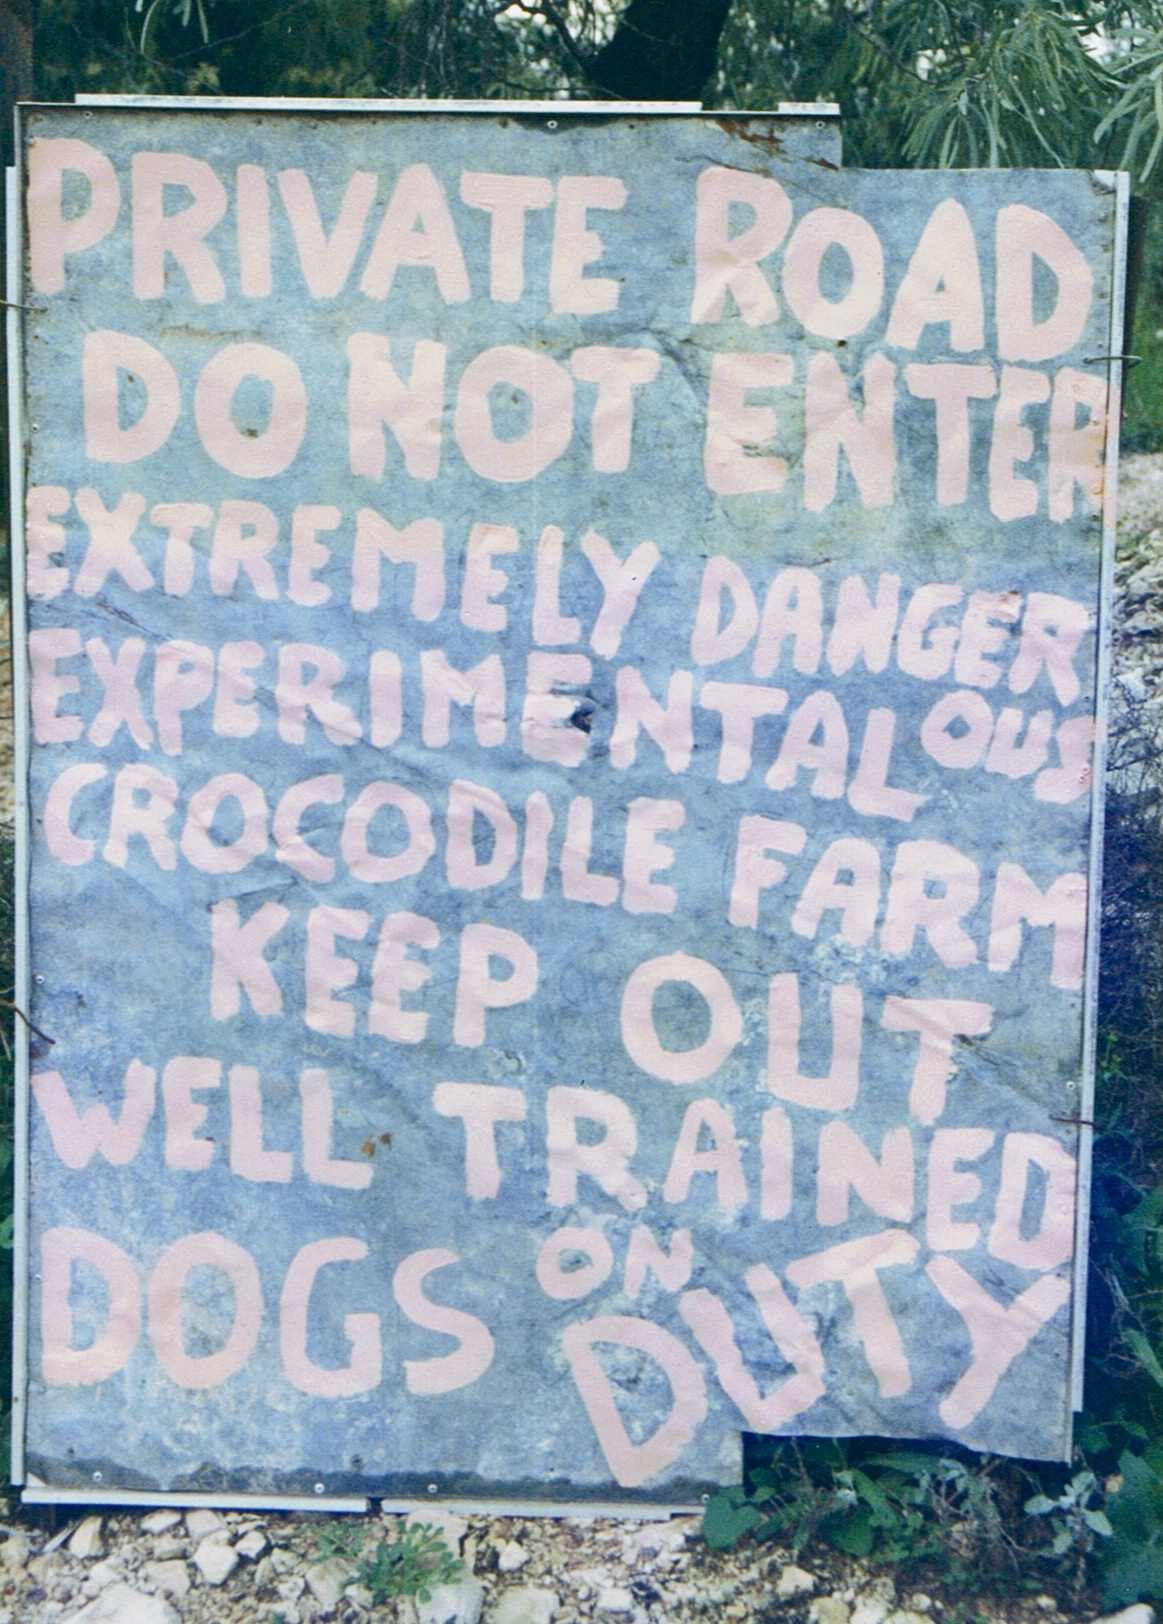 PRIVATE ROAD
DO NOT ENTER
EXTREMELY DANGER
OUS
EXPERIMENTAL
CROCODILE FARM
KEEP OUT
WELL TRAINED
DOGS ON DUTY